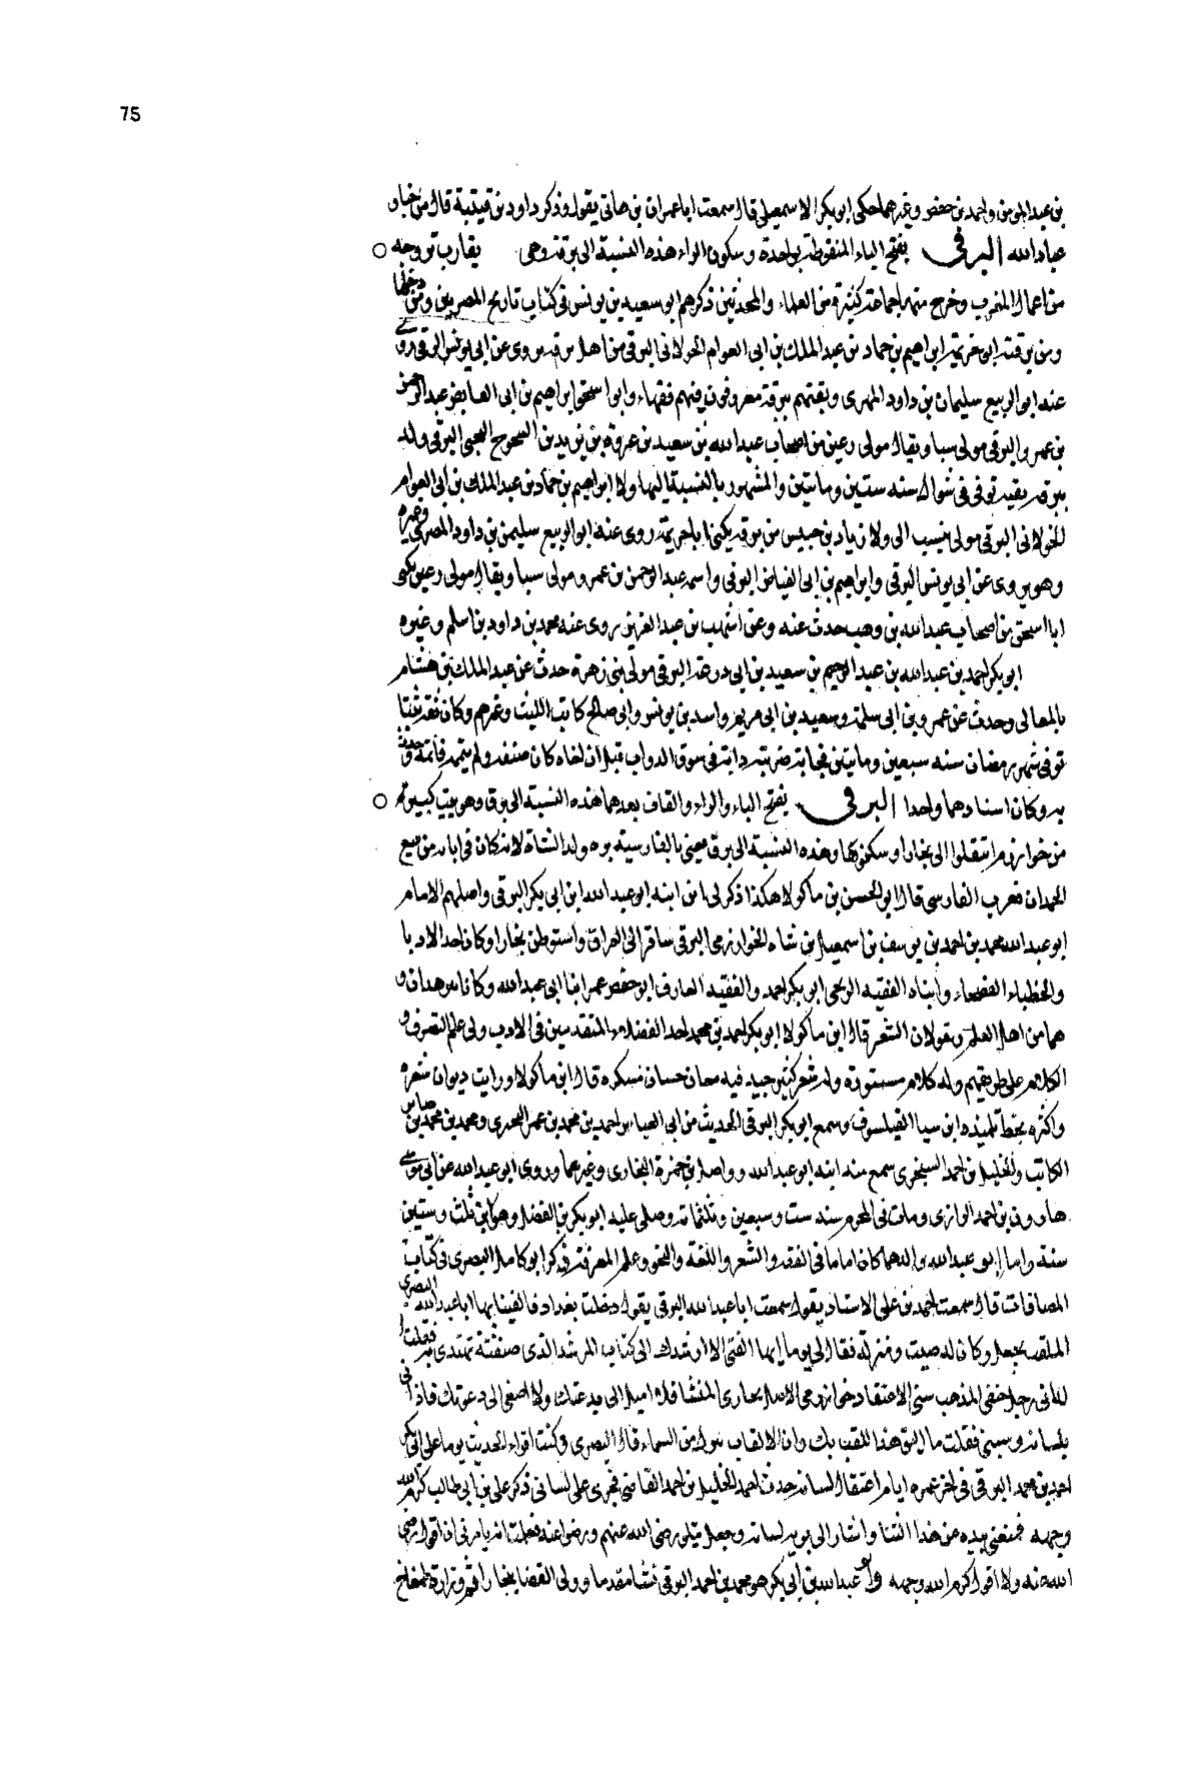 75
بن عبد المومن واحمد بن حفص وغيرهما حكى ابو بكر الاسمعيلى قال سمعت ابا عمران بن هانى يقول وذكر داود بن قتيبة قال من خيار
عباد الله البرقى بفتح الباء المنقوطة بواحدة وسكون الراء هذه النسبة الى برقة وهى يقارب تروجه
من اعمال المغرب وخرج منها جماعة كثيرة من العلماء والمحدثين ذكرهم ابو سعيد بن يونس فى كتاب تاريخ المصريين ومن دخلها
ومن برقة ابو خزيمة ابراهيم بن حماد بن عبد الملك بن ابى العوام الخولانى البرقى من اهل برقة يروى عن ابى يونس البرقى روى
عنه ابو الربيع سليمان بن داود المهرى وبقيتهم ببرقة معروفون فيهم فقهاء وابو اسحق ابراهيم بن ابى الفياض عبد الرحمن
بن عمرو البرقى مولى سبا ويقال مولى رعين من اصحاب عبد الله بن سعيد بن عروة بن يزيد بن السحوح البرقى ولد
ببرقة توفى فى شوال سنه ستين وماتين والمشهور بالنسبة اليها ولا ابراهيم بن حماد بن عبد الملك بن ابى العوام
الخولانى البرقى مولى ينسب الى ولا زياد بن من برقة يكنى ابا خزيمة روى عنه ابو الربيع سليمن بن داود المصرى وغيره
وهو يروى عن ابى يونس البرقى وابراهيم بن ابى الفياض البرقى واسمه عبد الرحمن بن عمرو مولى سبا ويقال مولى رعين يكنى
ابا اسحق من اصحاب عبد الله بن وهب حدث عنه وعن اشهب بن عبد العزيز روى عنه محمد بن داود بن اسلم وغيره
ابو بكر احمد بن عبد الله بن عبد الرحيم بن سعيد بن ابى درعة البرقى مولى بنى زهرة حدث عن عبد الملك بن هشام
بالمغازى وحدث عن عمرو بن ابى سلمة وسعيد بن ابى مريم واسد بن يونس وابى صالح كاتب الليث وغيرهم وكان ثقة ثبتا
توفى شهر رمضان سنه سبعين وماتين فجاة ضربته دابة فى سوق الدواب قبل ان اخاه كان صنفه ولم يتمه فاتمه وحدث
به وكان اسنادهما واحدا البرقى بفتح الباء والراء والقاف بعدهما هذه النسبة الى برق وهو بيت كبير
من خوارزم انتقلوا الى بخارا وسكنوها وهذه النسبة الى برق يعنى بالفارسية بره ولد الشاة لانه كان فى ابايه من يبيع
الحملان فعرب الفارسى قال ابو الحسن بن ماكولا هكذا ذكر لى ابن ابنه ابو عبد الله ابن ابى بكر البرقى واصلهم الامام
ابو عبد الله محمد بن احمد بن يوسف بن اسمعيل بن شاه الخوارزمى البرقى سافر الى العراق واستوطن بخارا وكان احد الادبا
والخطباء الفصحاء وابناه الفقيه ابو بكر احمد والفقيه العارف ابو حفص عمر ابنا ابى عبد الله وكانا
هما من اهل العلم ويقولان الشعر قال ابن ماكولا ابو بكر احمد بن محمد احد الفضلاء المتقدمين فى الادب ولى علم التصوف و
الكلام على طريقتهم وله كلام وله شعر كثير جيد فيه معان حسان مبتكره قال ابن ماكولا ورايت ديوان شعره
واكثره بخط تلميذه ابن سينا الفيلسوف وسمع ابو بكر البرقى الحديث من ابى العباس احمد بن محمد بن عمر ومحمد بن محمد بن صابر
الكاتب والخليل بن احمد السجزى سمع منه ابنه ابو عبد الله وواصل بن حمزة البخارى وغيرهما وروى ابو عبد الله عن ابى على
هارون بن احمد الرازى ومات فى المحرم سنه ست وسبعين وثلثماية وصلى عليه ابو بكر بن الفضل وهو ابن ثلث وستين
سنة واما ابو عبد الله والدهما كان اماما فى الفقه والشعر واللغة والنحو وعلم المعرفة ذكر ابو كامل البصرى فى كتاب
المضافات قال سمعت احمد بن على الاستاد يقول سمعت ابا عبد الله البرقى يقول دخلت بغداد فالفينا بها ابا عبد الله البصرى
الملقب بجعل وكان له صيت ومنزلة فقال لى يوما ايها الفتى الا ارشدك الى كتاب المرشد الذى صنفته تهتدى به فقلت
اننى رجل حنفى المذهب سنى الاعتقاد خوارزمى الاصل بخارى المنشا فلا اميل الى بدعتك ولا اصغى الى دعوتك فاذانى
بلسانه وسبنى فقلت ما اليق هذا اللقب بك وان الالقاب تنزل من السماء قال البصرى وكنت اقراء الحديث يوما على ابى بكر
احمد بن محمد البرقى فى اخر عمره ايام اعتقال لسانه حدث احمد الخليل بن احمد القاضى فجرى على لسانى ذكر على بن ابى طالب كرم الله
وجهه فمنعنى بيده عن هذا الثنا واشار الى يريد لسانه وجعل يقول رضى الله عنهم ورضوا عنه فعلمت انه يامرنى ان اقول رضى
الله عنه ولا اقول كرم الله وجهه وابو عبد الله بن ابى بكر هو محمد بن احمد البرقى نشا مقدما وولى القضا ببخارا ثم وزارة